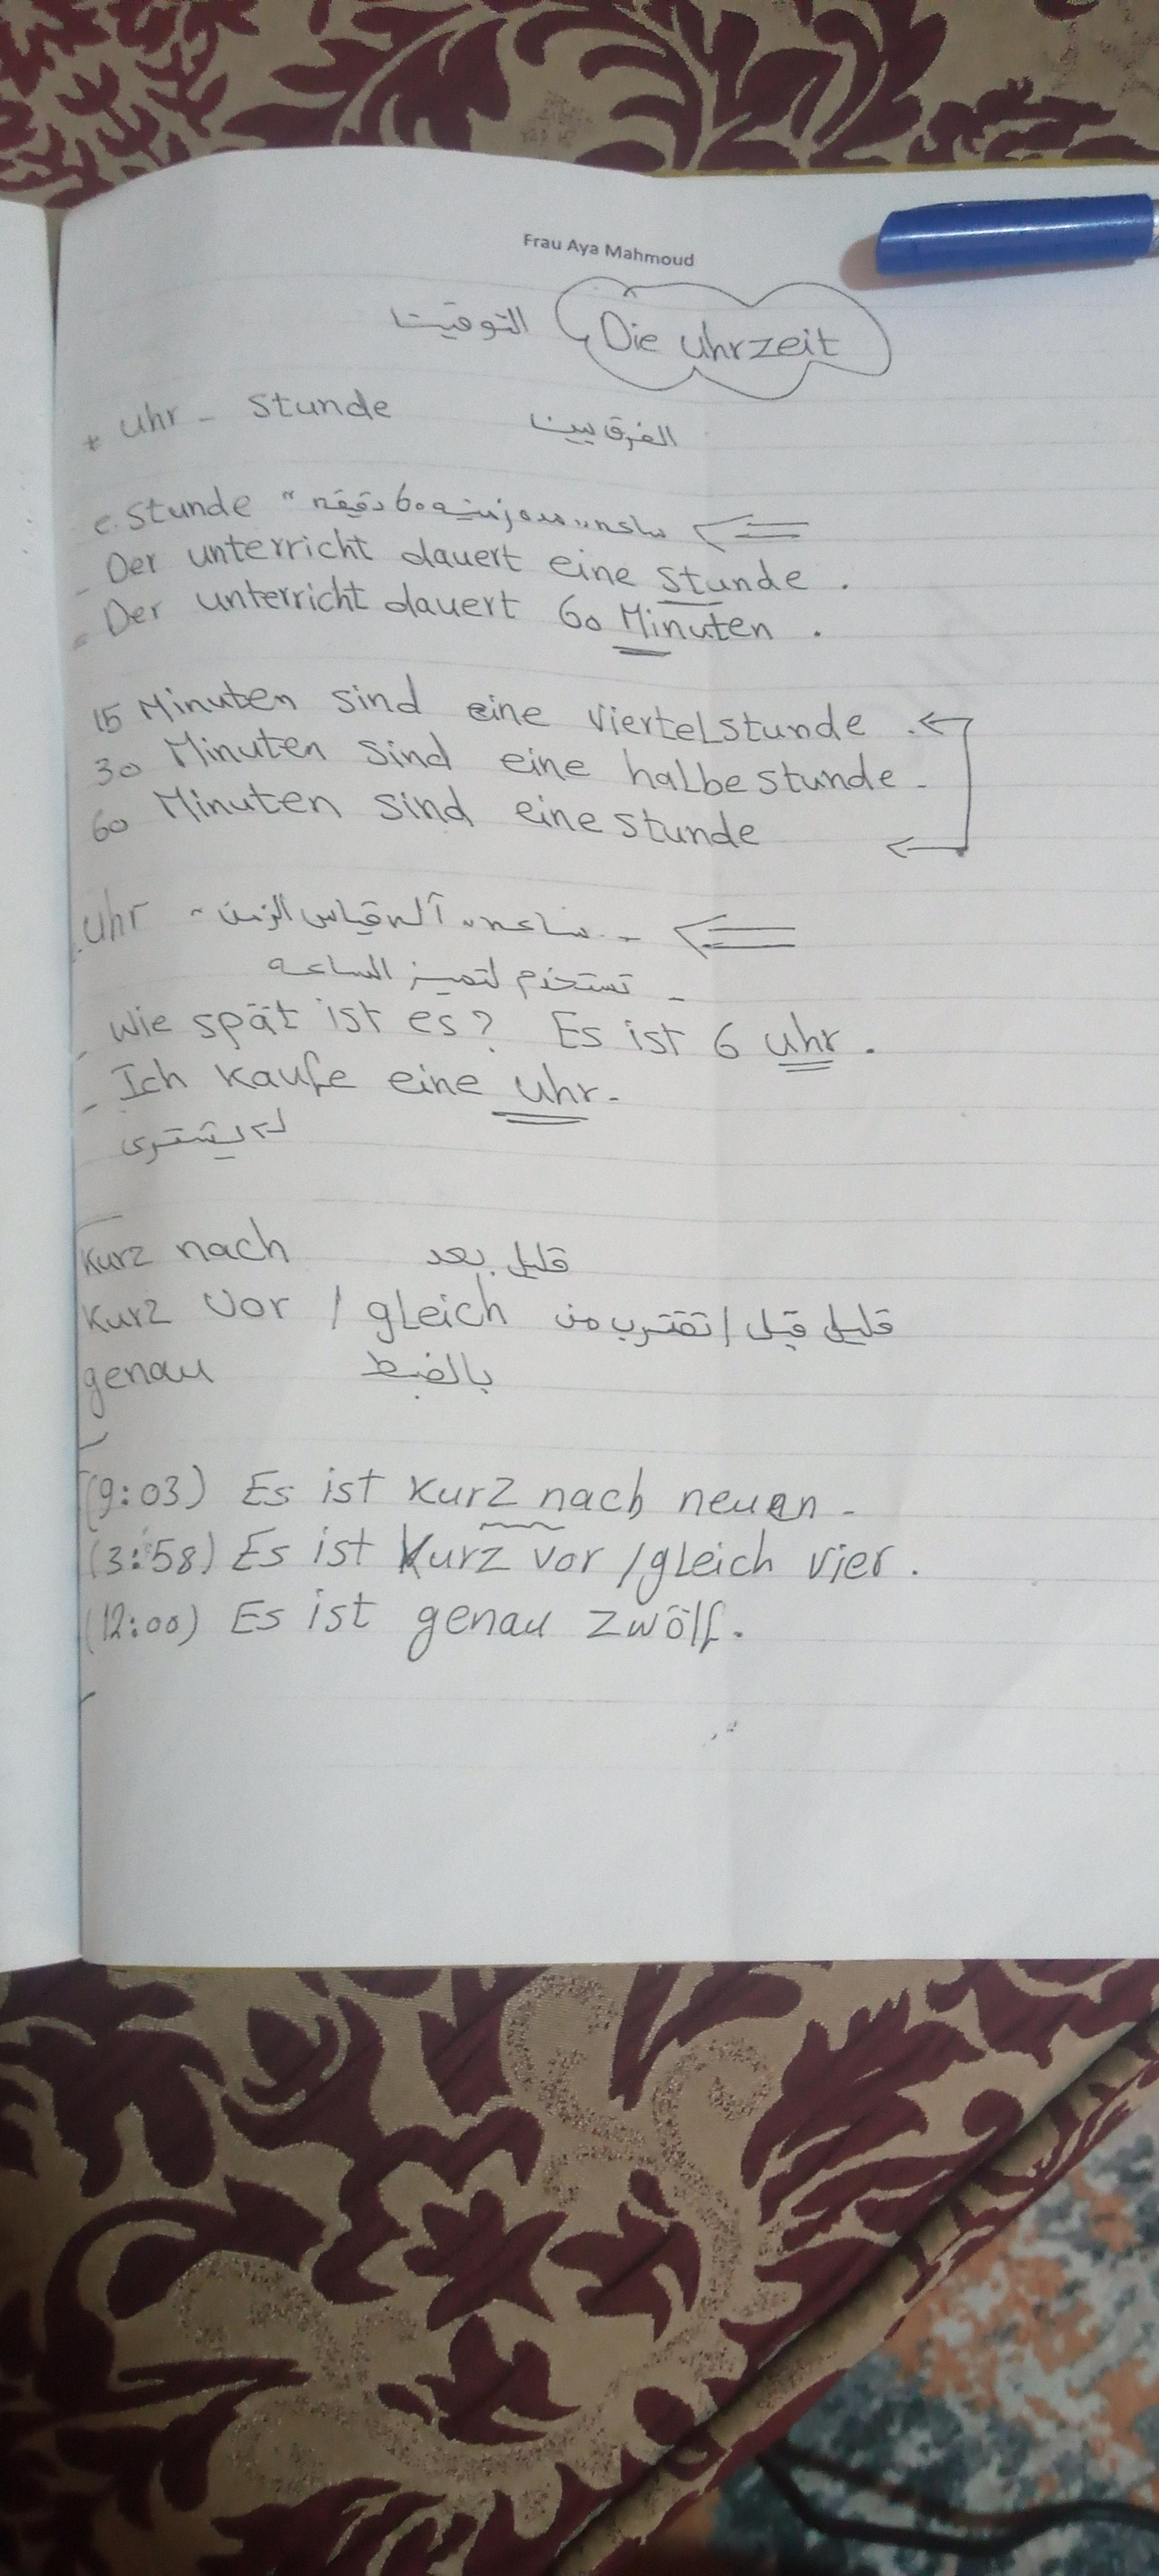 Frau Aya Mahmoud
Die uhrzeit التوقيت
* uhr - stunde الفرق بين
e. stunde " ساعه "مده زمنيه 60 دقيقه
- Der unterricht dauert eine stunde .
- Der unterricht dauert 60 Minuten .
15 Minuten sind eine viertelstunde .
30 Minuten sind eine halbe stunde -
60 Minuten sind eine stunde
uhr - ساعه "آله قياس الزمن
- تستخدم لتميز الساعه
- wie spät ist es? Es ist 6 uhr .
- Ich kaufe eine uhr.
يشترى
kurz nach قليل بعد
kurz vor / gleich قليل قبل / تقترب من
genau بالضبط
(9:03) Es ist kurz nach neuen -
(3:58) Es ist kurz vor /gleich vier .
(12:00) Es ist genau zwölf.